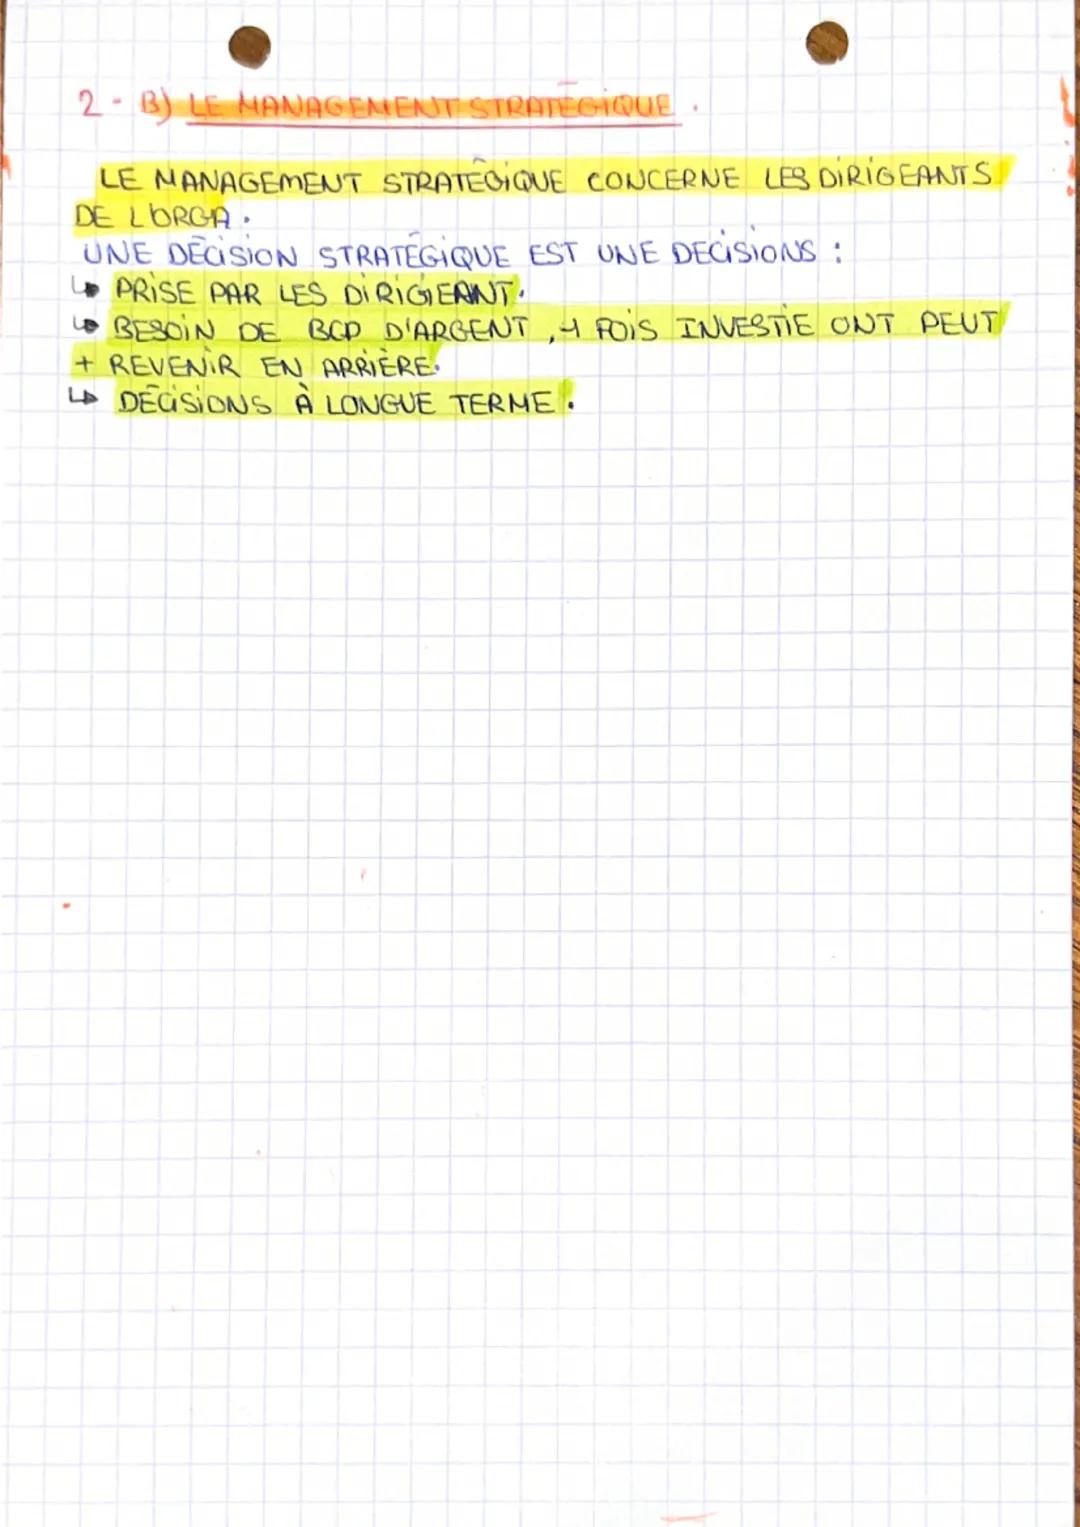 2 - B) LE MANAGEMENT STRATÉGIQUE.
LE MANAGEMENT STRATÉGIQUE CONCERNE LES DIRIGEANTS
DE L'ORGA.
UNE DÉCISION STRATÉGIQUE EST UNE DECISIONS :
↳ PRISE PAR LES DIRIGEANT.
↳ BESOIN DE BCP D'ARGENT, 1 FOIS INVESTIE ONT PEUT
+ REVENIR EN ARRIÈRE.
↳ DÉCISIONS À LONGUE TERME.